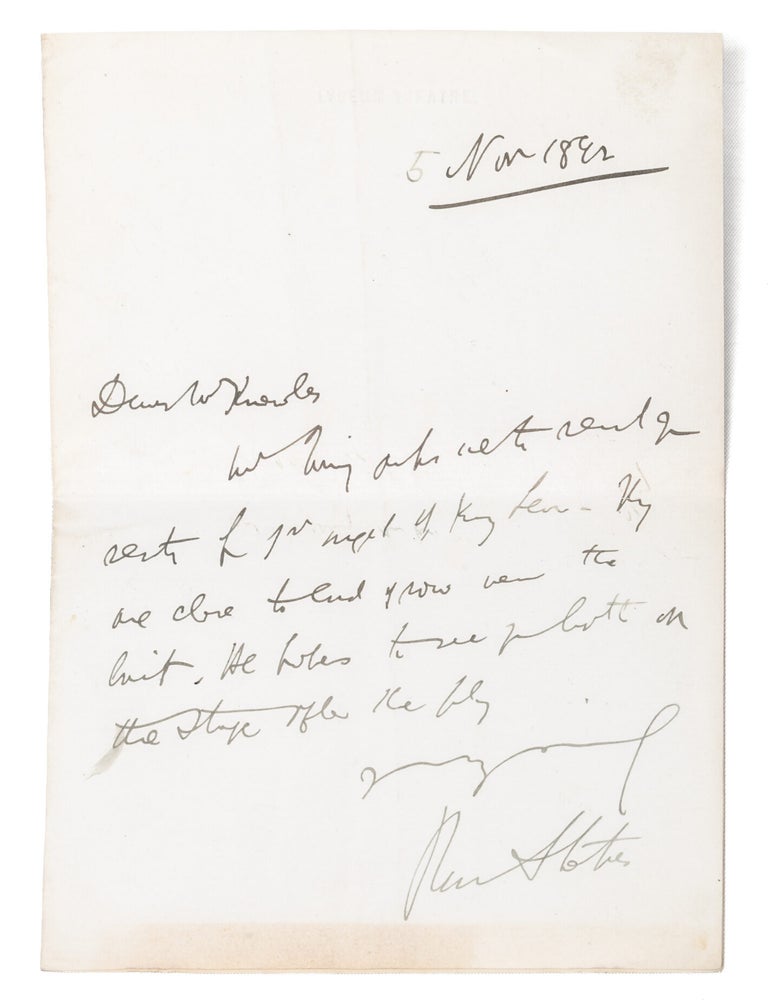 LYCEUM THEATRE
5 Nov 1892
Dear Mr Knowles
Mr Irving asks me to send you
seats for 1st night of King Lear - They
are close to end of row near the
Exit. He hopes to see you both on
the stage after the play
Bram Stoker